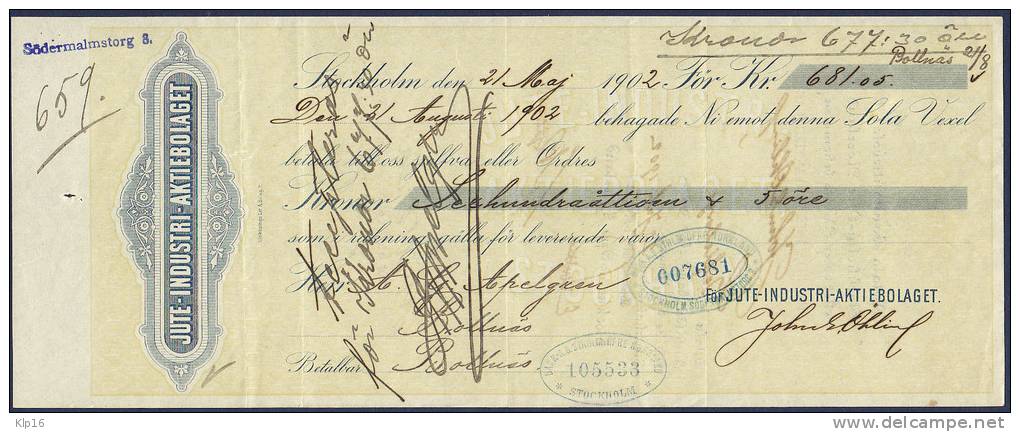 Södermalmstorg 8.
659.
Kronor 677:30 öre
Bollnäs 21/8
Stockholm den 21 Maj 1902 För Kr. 681.05.
Den 21 Augusti 1902 behagade Ni emot denna Sola Vexel
betala till oss sjelfva eller Ordres
Kronor Sexhundraåttioen & 5 öre
som i räkning gälla för levererade varor.
Herr A. Apelgren
Bollnäs
Betalbar Bollnäs
JUTE-INDUSTRI-AKTIEBOLAGET
för Kronor 677:30 öre
007681
För JUTE-INDUSTRI-AKTIEBOLAGET.
105533
STOCKHOLM
Klp16
delcampe.net